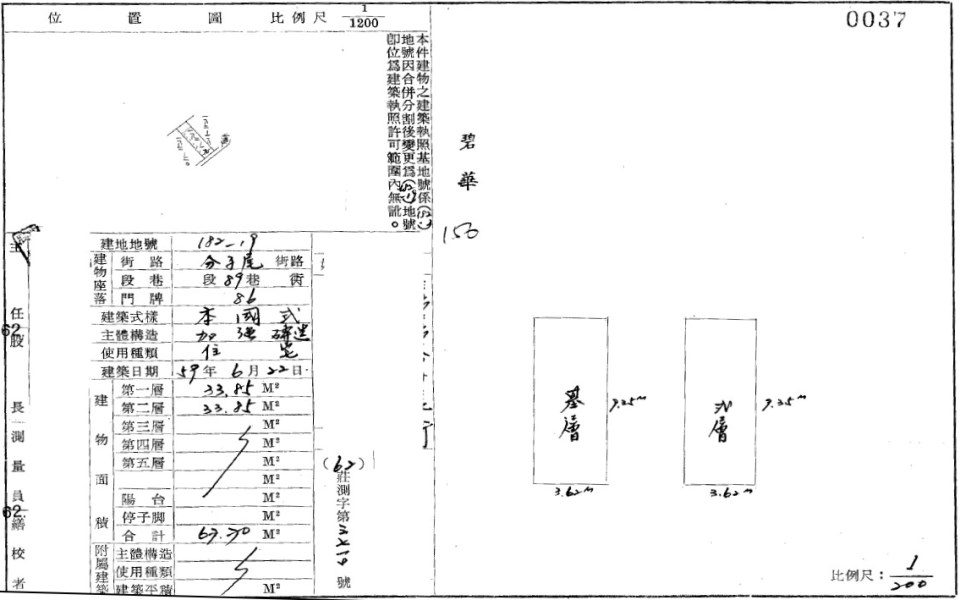 位置圖 比例尺 1/1200
0037
本件建物之建築執照基地號係
地號因合併分割後變更為 地號
卽位爲建築執照許可範圍內無訛。
碧華
156
建地地號 182-19
建物座落
街路 分子尾 街路
段巷 段89巷 衖
門牌 86
建築式樣 本國式
主體構造 加強磚造
使用種類 住宅
建築日期 59年6月22日
建物面積
第一層 33.85 M²
第二層 33.85 M²
第三層 M²
第四層 M²
第五層 M²
M²
陽台 M²
停子脚 M²
合計 67.70 M²
附屬建築
主體構造
使用種類
建築平積 M²
(62)莊測字第 號
主任
62
股長
測量員
62.
繕校者
基層
9.35M
3.62M
弍層
9.35M
3.62M
比例尺: 1/200